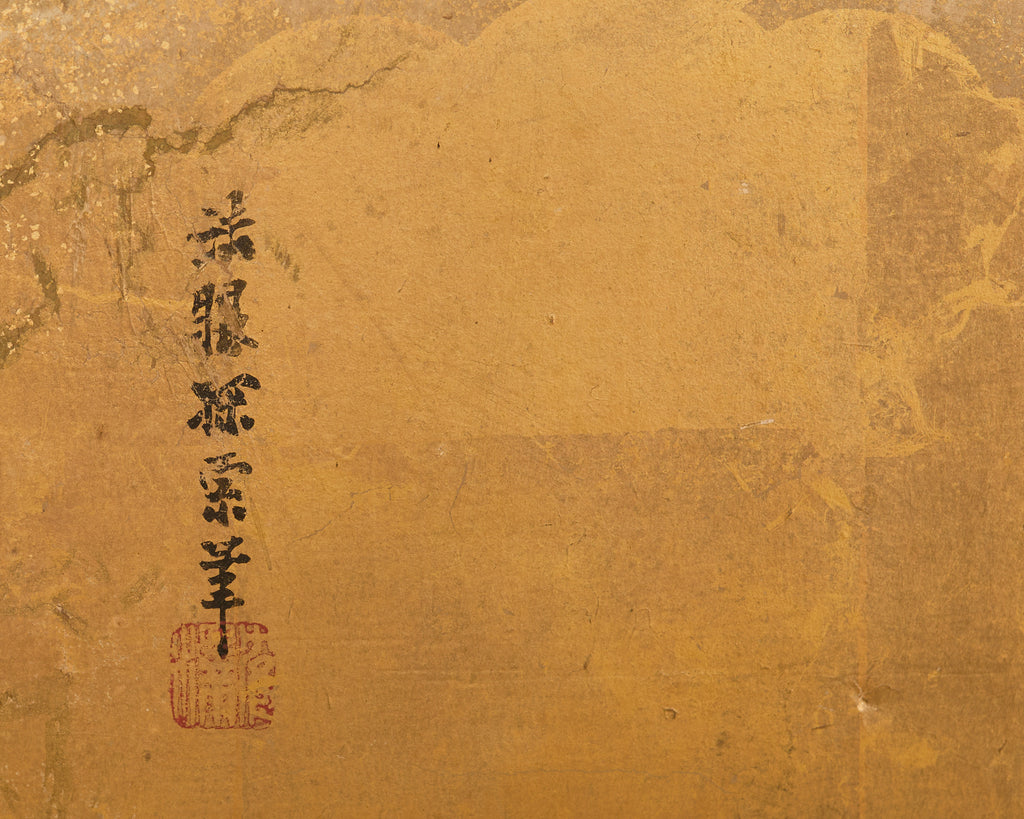 法眼探宗筆